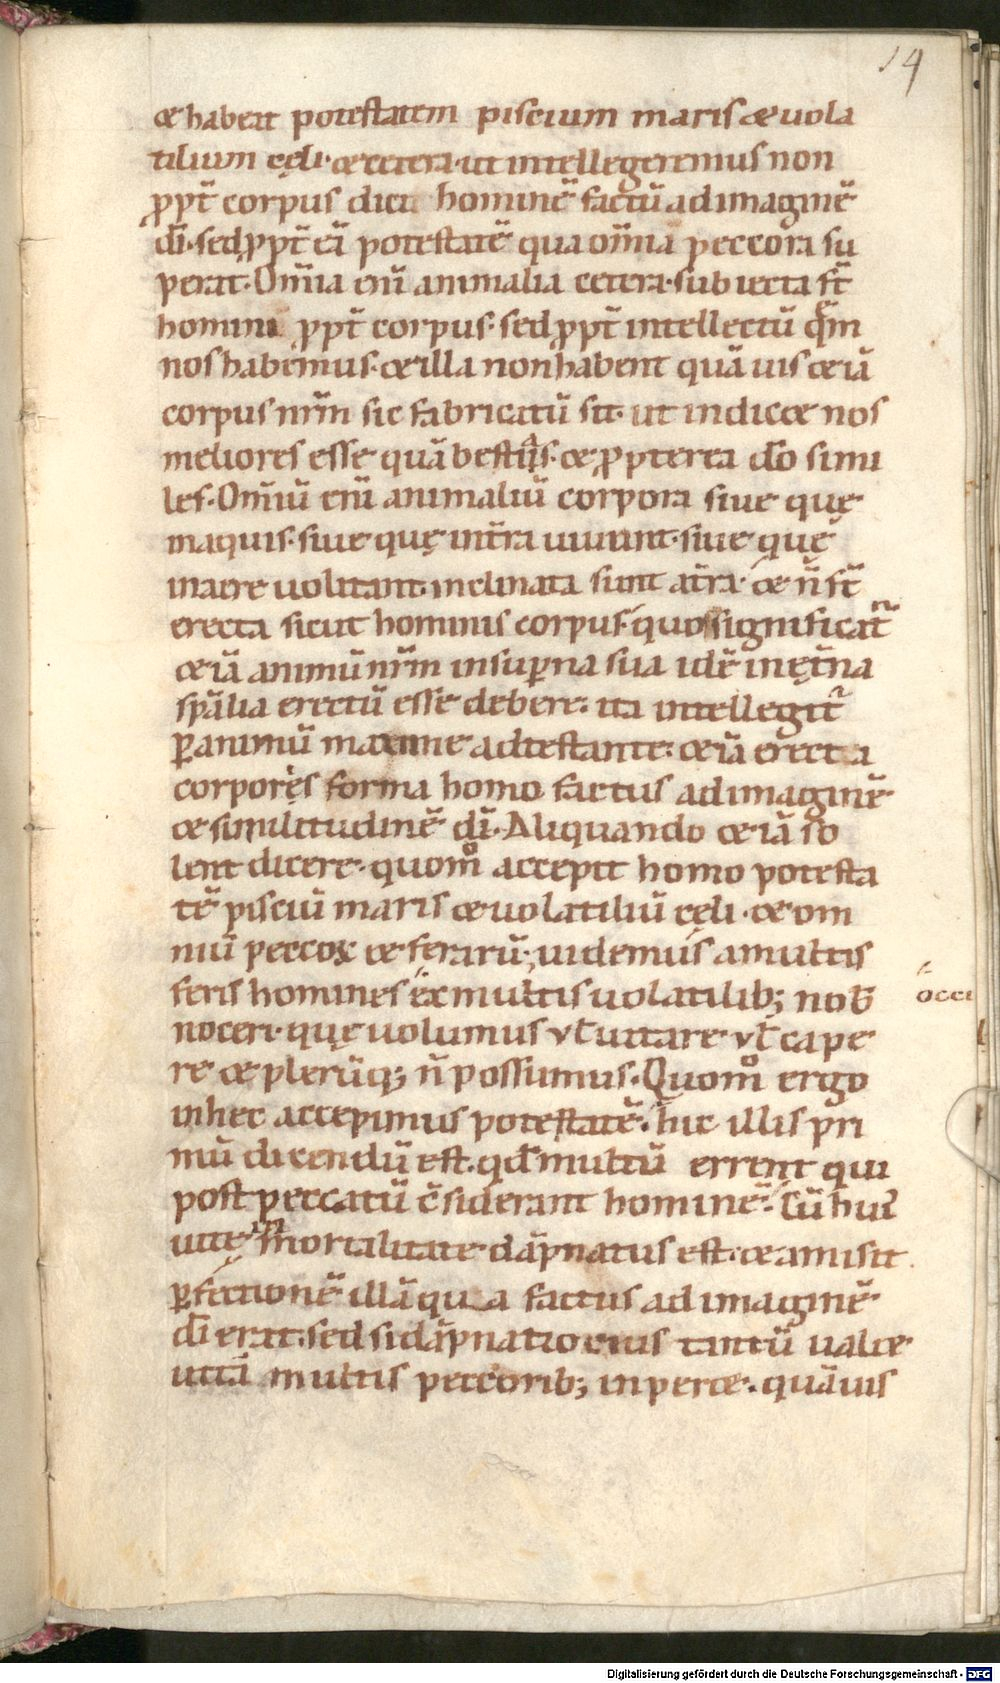 14
& habeat potestatem piscium maris & uola
tilium cęli · & cetera · ut intellegeremus non
ꝓpt̄ corpus dici hominē factū ad imaginē
dī · sed ꝓpt̄ eā potestatē qua om̄ia peccora su
perat · Om̄ia enī animalia cetera · subiecta st̄
homini ꝓpt̄ corpus · sed ꝓpt̄ intellectū quē
nos habemus · & illa non habent quāuis & iā
corpus nr̄m sic fabricatū sit · ut indic& nos
meliores esse quā bestias · & ꝓpterea dō simi
les · Om̄iū enī animaliū corpora siue quę
in aquis · siue quę in t̄ra uiuunt · siue quę
in aere uolitant · inclinata sunt a t̄ra · & n̄ st̄
erecta sicut hominis corpus · quo significat̄
& iā animū nr̄m in suꝑna sua idē in ęt̄na
spālia erectū esse debere · ita intellegit̄
ꝑ animū maxime adtestante · & iā erecta
corporęs forma homo factus ad imaginē
& similitudinē dī · Aliquando & iā so
lent dicere · quomo accepit homo potesta
tē pisciū maris & uolatiliū cęli · & om
niū peccoꝝ & ferarū; uidemus a multis
feris homines & ex multis uolatilib; nob̄ occi
noceri · quę uolumus vt̄ uitare vt̄ cape
re & plerūq; n̄ possumus · Quomo ergo
in hec accepimus potestatē · hic illis pri
mū dicendū est · qđ multū errent qui
post peccatū c̄siderant hominē · Cū hui
uitę in mortalitate dāpnatus est · & amisit
ꝑfectionē illā qua factus ad imaginē
dī erat · sed si dāpnatio eius tantū ual&
ut tā multis peccorib; inper& · quāuis
Digitalisierung gefördert durch die Deutsche Forschungsgemeinschaft - DFG